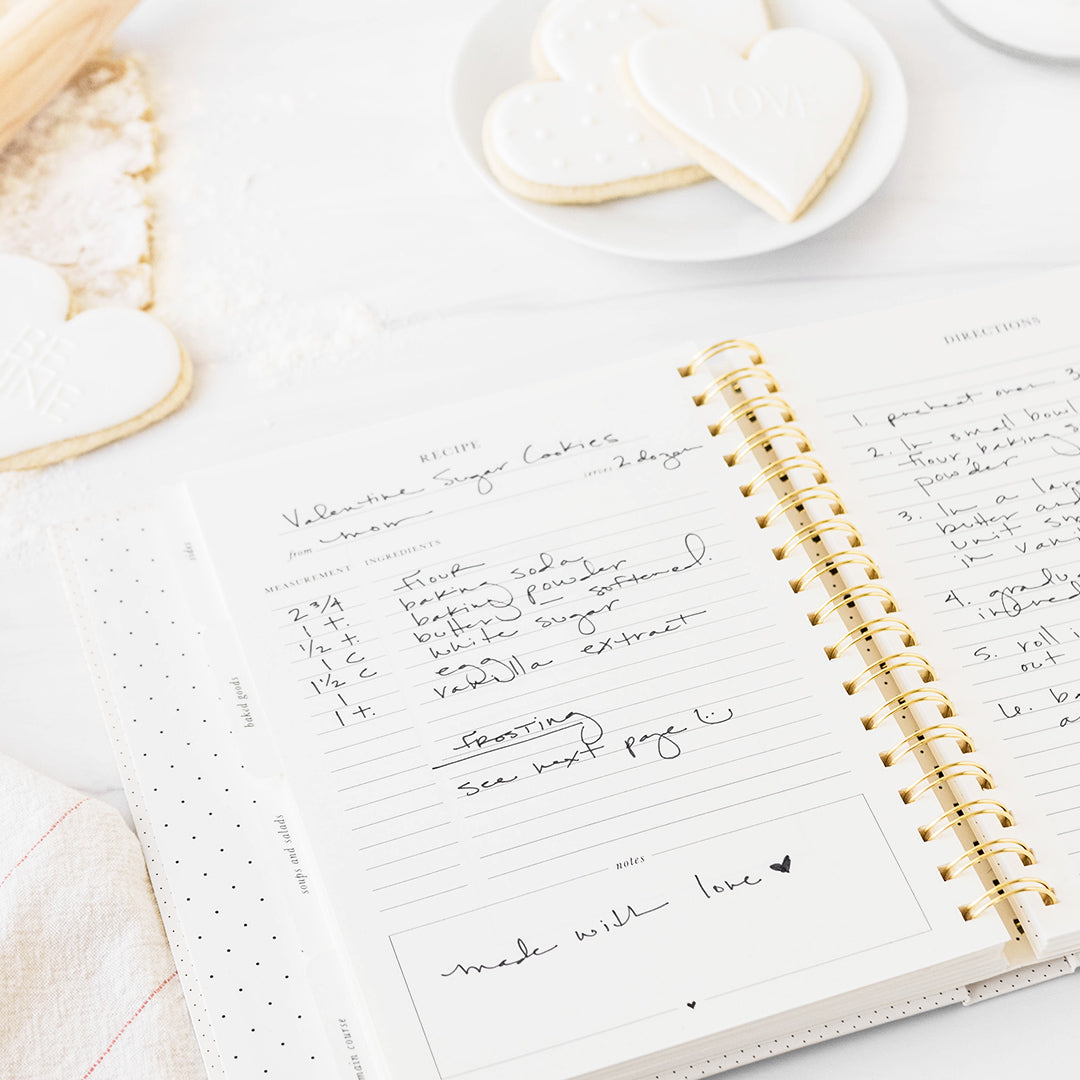 LOVE
RECIPE
Valentine Sugar Cookies
serves 2 dozen
from mom
MEASUREMENT INGREDIENTS
2 3/4 flour
1 t. baking soda
1/2 t. baking powder
1 c butter softened.
1 1/2 c white sugar
1 egg
1 t. vanilla extract
FROSTING
see next page
notes
made with love ♥
♥
sides
baked goods
soups and salads
main course
DIRECTIONS
1. preheat oven 3
2. In small bowl
flour, baking s
powder
3. In a lar
butter and
unit sm
in vani
4. gradu
ingredi
5. roll i
out
6. ba
a